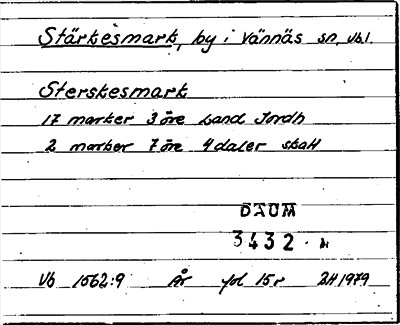 Stärkesmark, by i Vännäs sn, Vbl.
Sterskesmark
17 marker 3 öre Land Jordh
2 marker 7 öre 4 daler skatt
DAUM
3432
Vb 1562:9 År fol 15 r BH 1979